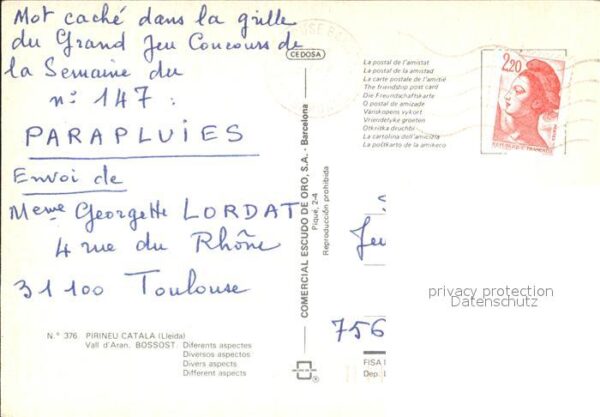 Mot caché dans la grille
du Grand Jeu Concours de
la Semaine du
n° 147 :
PARAPLUIES
Envoi de
Meme Georgette LORDAT
4 rue du Rhône
31100 Toulouse
N.° 376. PIRINEU CATALA (Lleida)
Vall d'Aran. BOSSOST. Diferents aspectes
Diversos aspectos
Divers aspects
Different aspects
CEDOSA
COMERCIAL ESCUDO DE ORO, S.A. - Barcelona
Piqué, 2-4
Reproducción prohibida
La postal de l'amistat
La postal de la amistad
La carte postale de l'amitié
The friendship post card
Die Freundschaftskarte
O postal de amizade
Vänskapens vykort
Vriendelyke groeten
Otkritka druchbi
La cartolina dell'amicizia
La poŝtkarto de la amikeco
2,20
REPUBLIQUE FRANÇAISE
Jeu
756
FISA
Dep.
privacy protection
Datenschutz